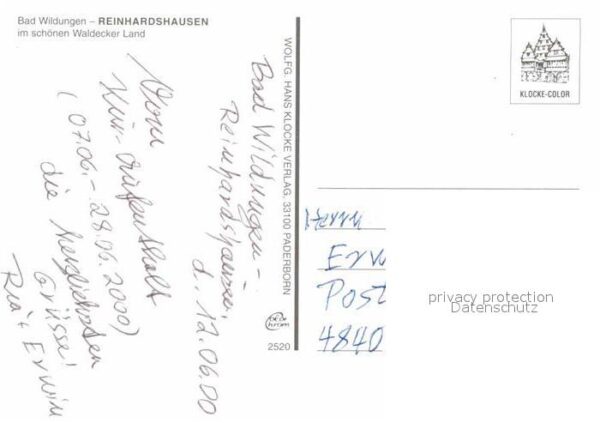 Bad Wildungen – REINHARDSHAUSEN
im schönen Waldecker Land
Bad Wildungen –
Reinhardshausen,
d. 12.06.00
Vom
Kur-Aufenthalt
(07.06.– 28.06.2000)
die herzlichsten
Grüsse!
Ria + Erwin
WOLFG. HANS KLOCKE VERLAG, 33100 PADERBORN
2520
KLOCKE-COLOR
Herrn
Erw
Post
4840
privacy protection
Datenschutz